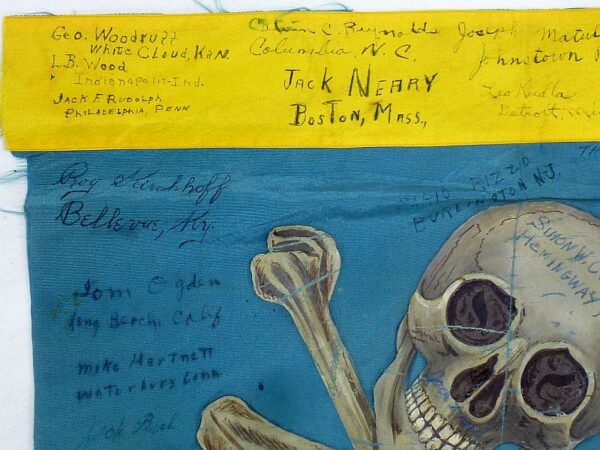 Geo. Woodruff
White Cloud, Kan.
L.B. Wood
Indianapolis-Ind.
Jack F Rudolph
Philadelphia, Penn
Calvin C. Reynolds
Columbia, N.C.
Jack Neary
Boston, Mass.,
Joseph Matul
Johnstown
Leo Kudla
Detroit,
Roy Kirchhoff
Bellevue, Ky.
Rizzio
Burlington N.J.
Simon W.C.
Hemingway,
Tom Ogden
Long Beach, Calif
Mike Hartnett
Waterbury Conn